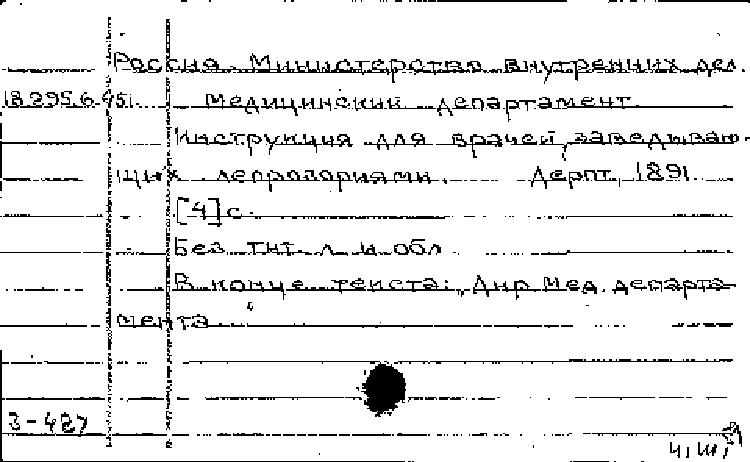 Россия. Министерство внутренних дел.
18.295.6.45. Медицинский департамент
Инструкция для врачей, заведываю-
щих лепрозориями. Дерпт, 1891.
[4] с.
Без тит. л. и обл.
В конце текста: Дир. Мед. департа-
мента
3-427